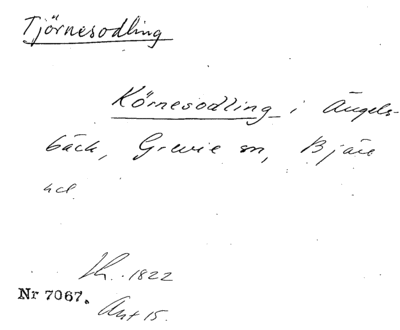 Tjörnesodling
Körnesodling i Ängels-
bäck, Grevie sn, Bjäre
hd.
Lh. 1822
Nr 7067.
Ant 15.